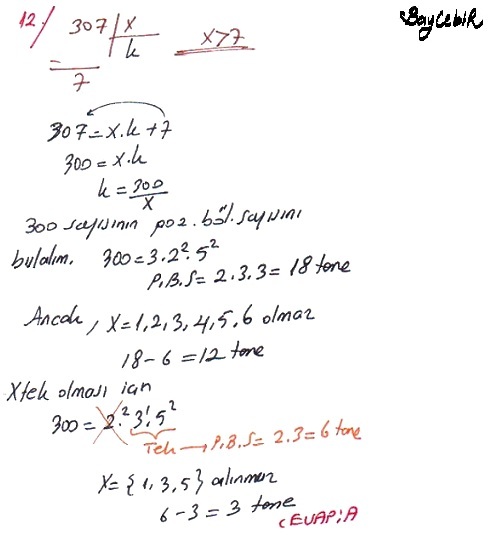 BayCebiR
12/ 307 | x
k
x>7
7
307 = x.k + 7
300 = x.k
k = 300/x
300 sayısının poz. böl. sayısını
bulalım. 300 = 3.2².5²
P.B.S = 2.3.3 = 18 tane
Ancak, x = 1,2,3,4,5,6 olmaz
18 - 6 = 12 tane
X tek olması için
300 = 2².3¹.5²
Tek → P.B.S = 2.3 = 6 tane
X = {1,3,5} alınmaz
6 - 3 = 3 tane
CEVAP: A